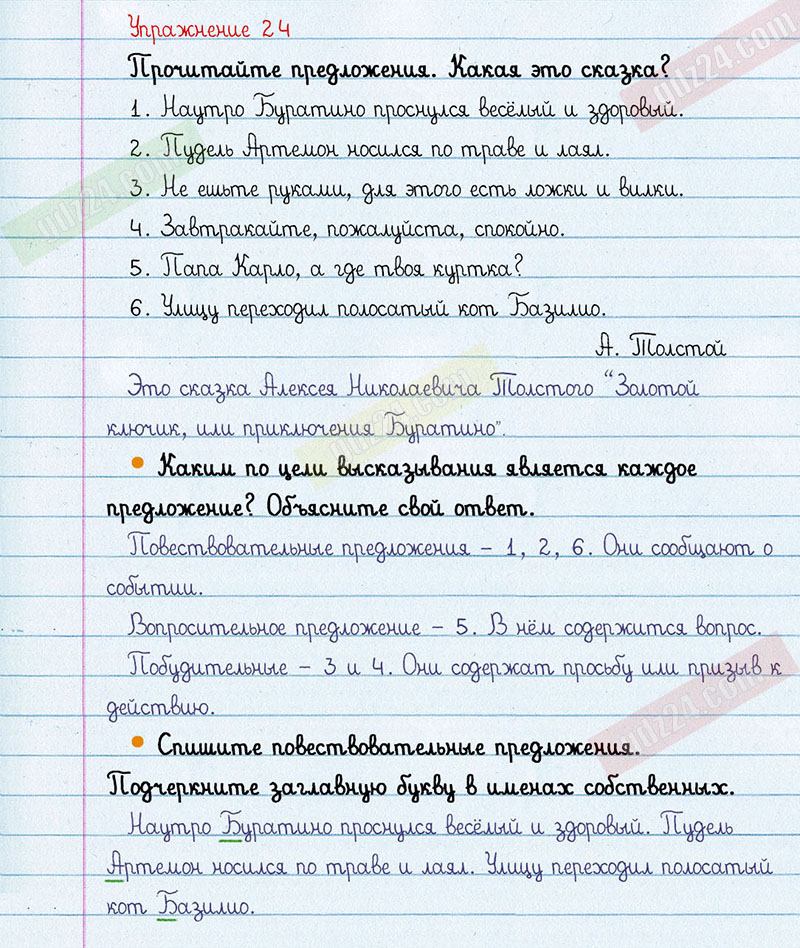 Упражнение 24
Прочитайте предложения. Какая это сказка?
1. Наутро Буратино проснулся весёлый и здоровый.
2. Пудель Артемон носился по траве и лаял.
3. Не ешьте руками, для этого есть ложки и вилки.
4. Завтракайте, пожалуйста, спокойно.
5. Папа Карло, а где твоя куртка?
6. Улицу переходил полосатый кот Базилио.
А. Толстой
Это сказка Алексея Николаевича Толстого “Золотой
ключик, или приключения Буратино”.
• Каким по цели высказывания является каждое
предложение? Объясните свой ответ.
Повествовательные предложения – 1, 2, 6. Они сообщают о
событии.
Вопросительное предложение – 5. В нём содержится вопрос.
Побудительные – 3 и 4. Они содержат просьбу или призыв к
действию.
• Спишите повествовательные предложения.
Подчеркните заглавную букву в именах собственных.
Наутро Буратино проснулся весёлый и здоровый. Пудель
Артемон носился по траве и лаял. Улицу переходил полосатый
кот Базилио.
gdz24.com
gdz24.com
gdz24.com
gdz24.com